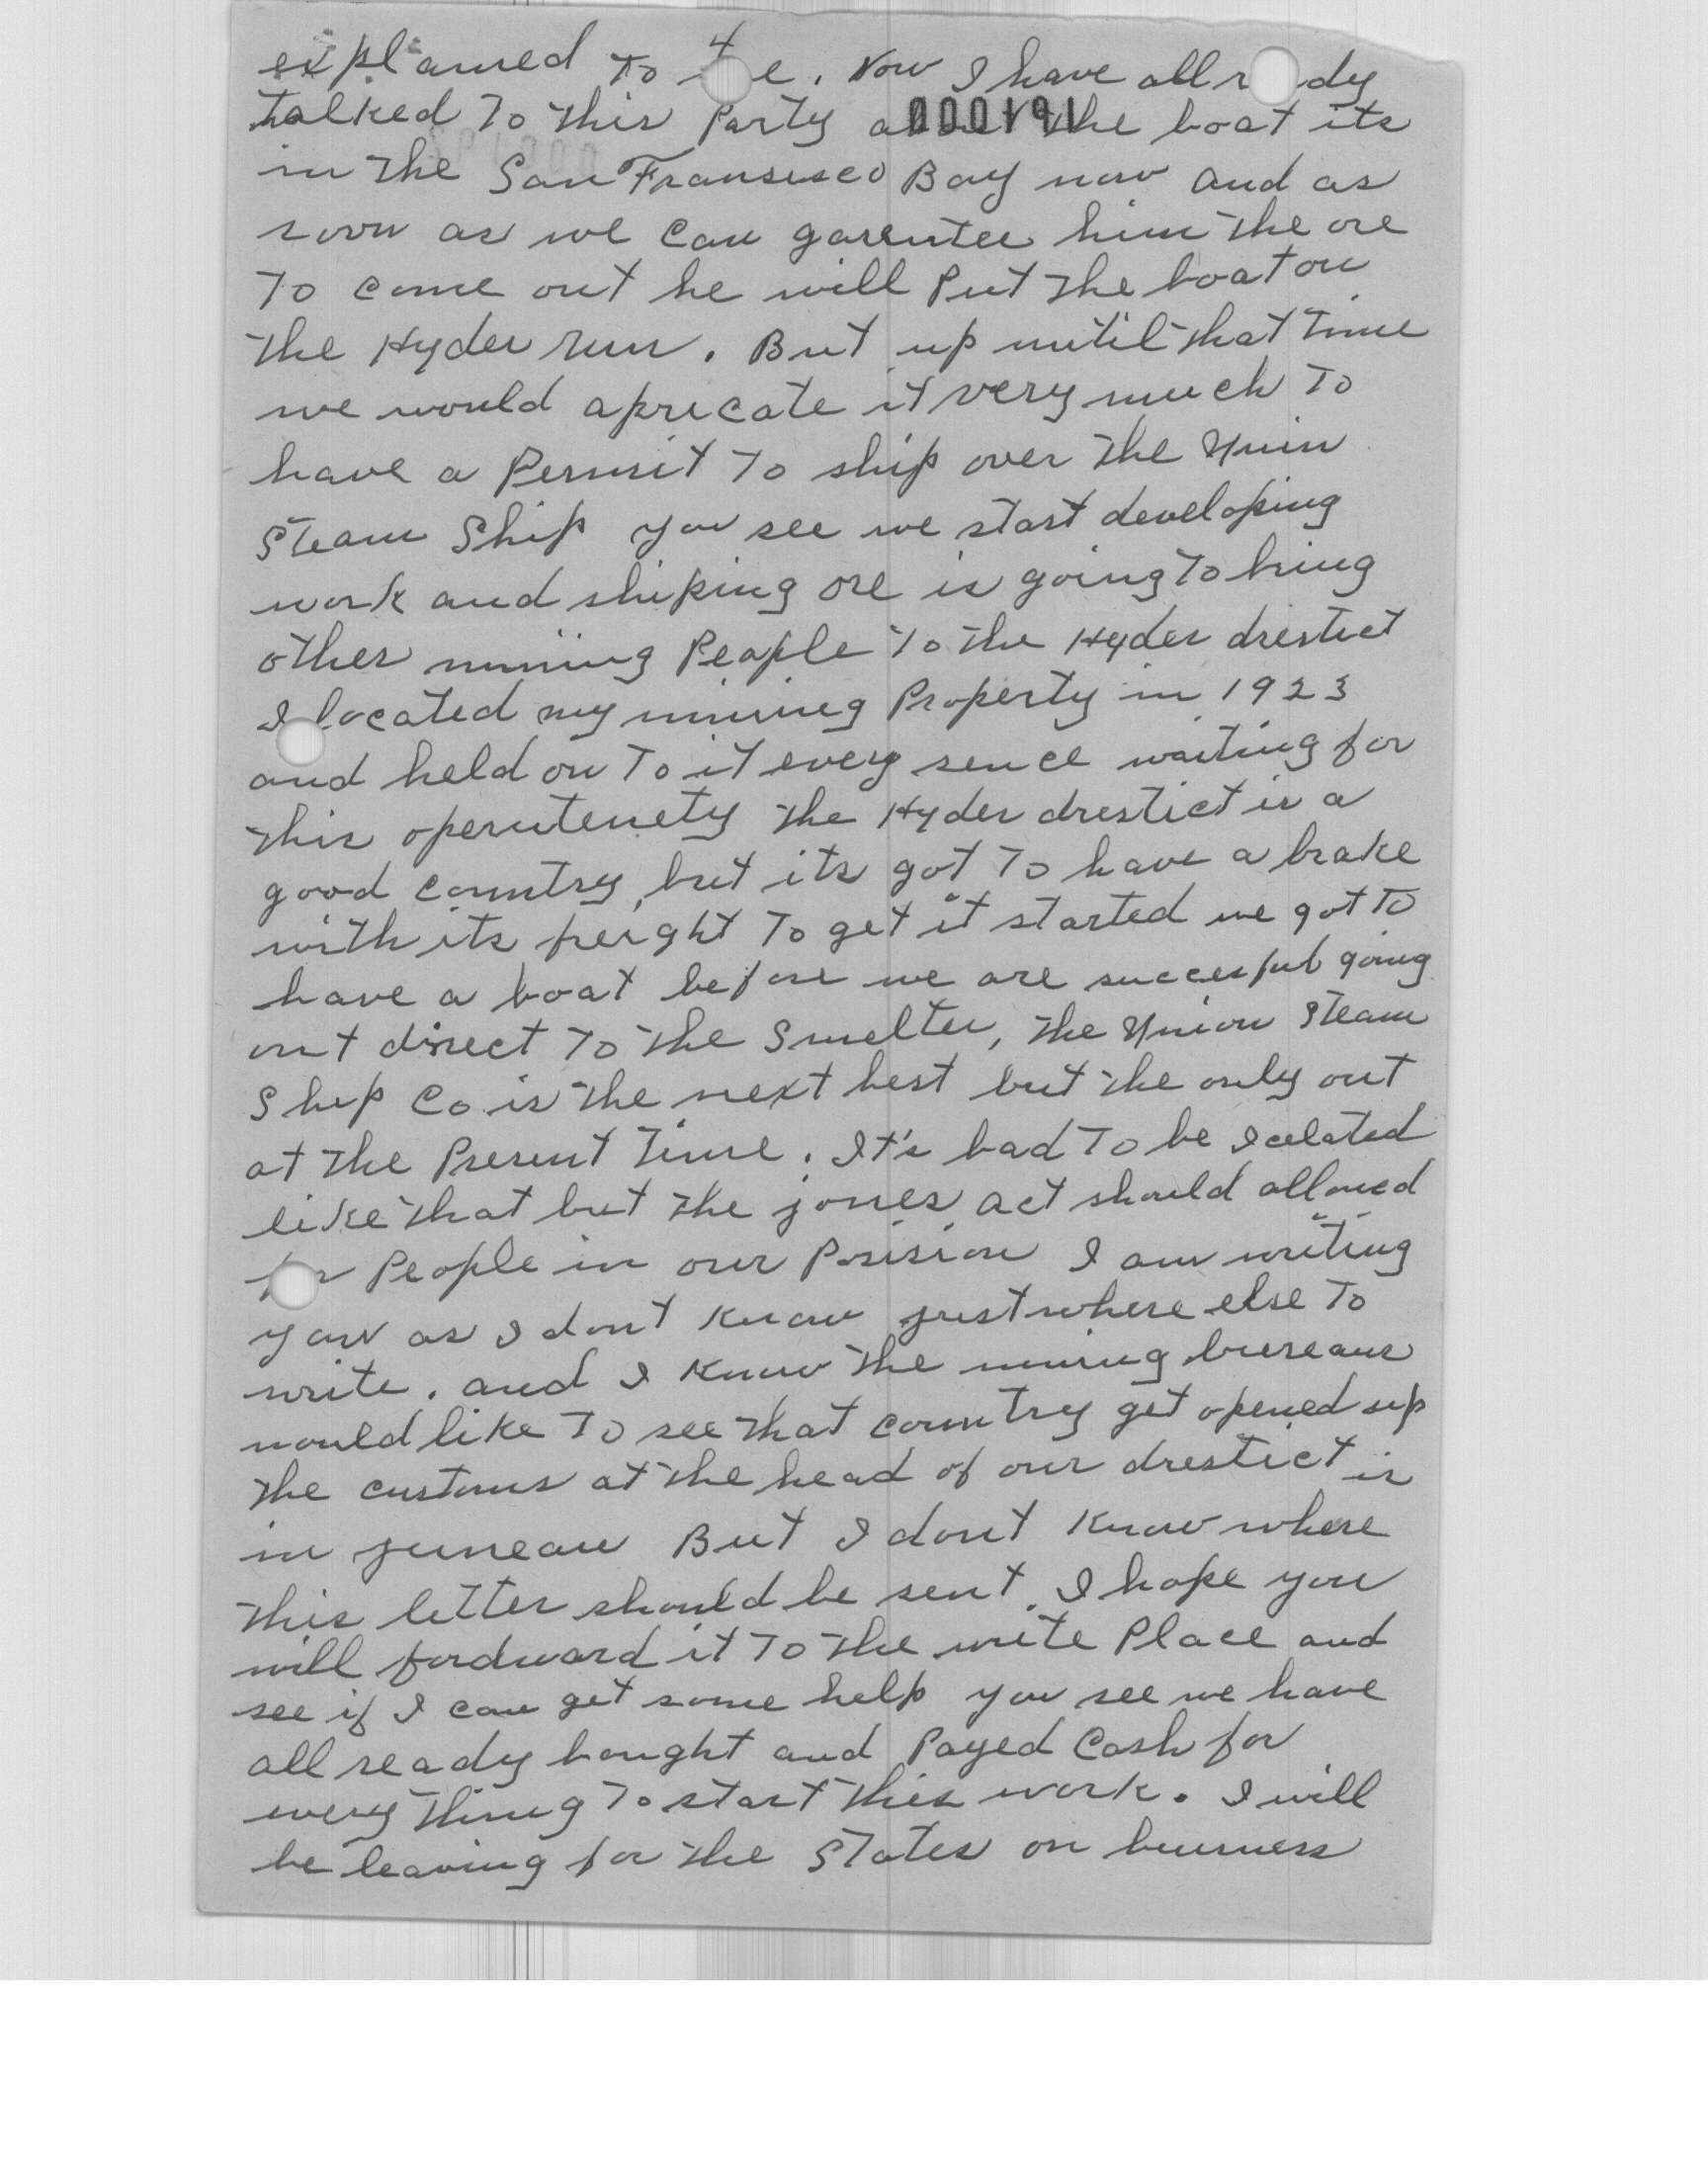 4
explained to me. Now I have allready
talked to this Party about the boat its
000191
in the San Fransisco Bay now and as
soon as we can garentee him the ore
to come out he will Put the boat on
the Hyder run. But up until that time
we would apricate it very much to
have a Permit to ship over the Unin
Steam Ship you see we start developing
work and shiping ore is going to bring
other mining People to the Hyder drestict
I located my mining Property in 1923
and held on to it every sence waiting for
this operutenety the Hyder drestict is a
good country, but its got to have a brake
with its freight to get it started we got to
have a boat before we are succesful going
out direct to the Smelter, the Union Steam
Ship Co is the next best but the only out
at the Present time. It's bad to be Icelated
like that but the jones act should allowed
for People in our Posision I am writing
you as I dont Know just where else to
write. and I Know the mining bureaus
would like to see that country get opened up
the customs at the head of our drestict is
in juneau But I dont Know where
this letter should be sent. I hope you
will fordward it to the write Place and
see if I can get some help you see we have
all ready bought and Payed Cash for
every thing to start this work. I will
be leaving for the States on buisness